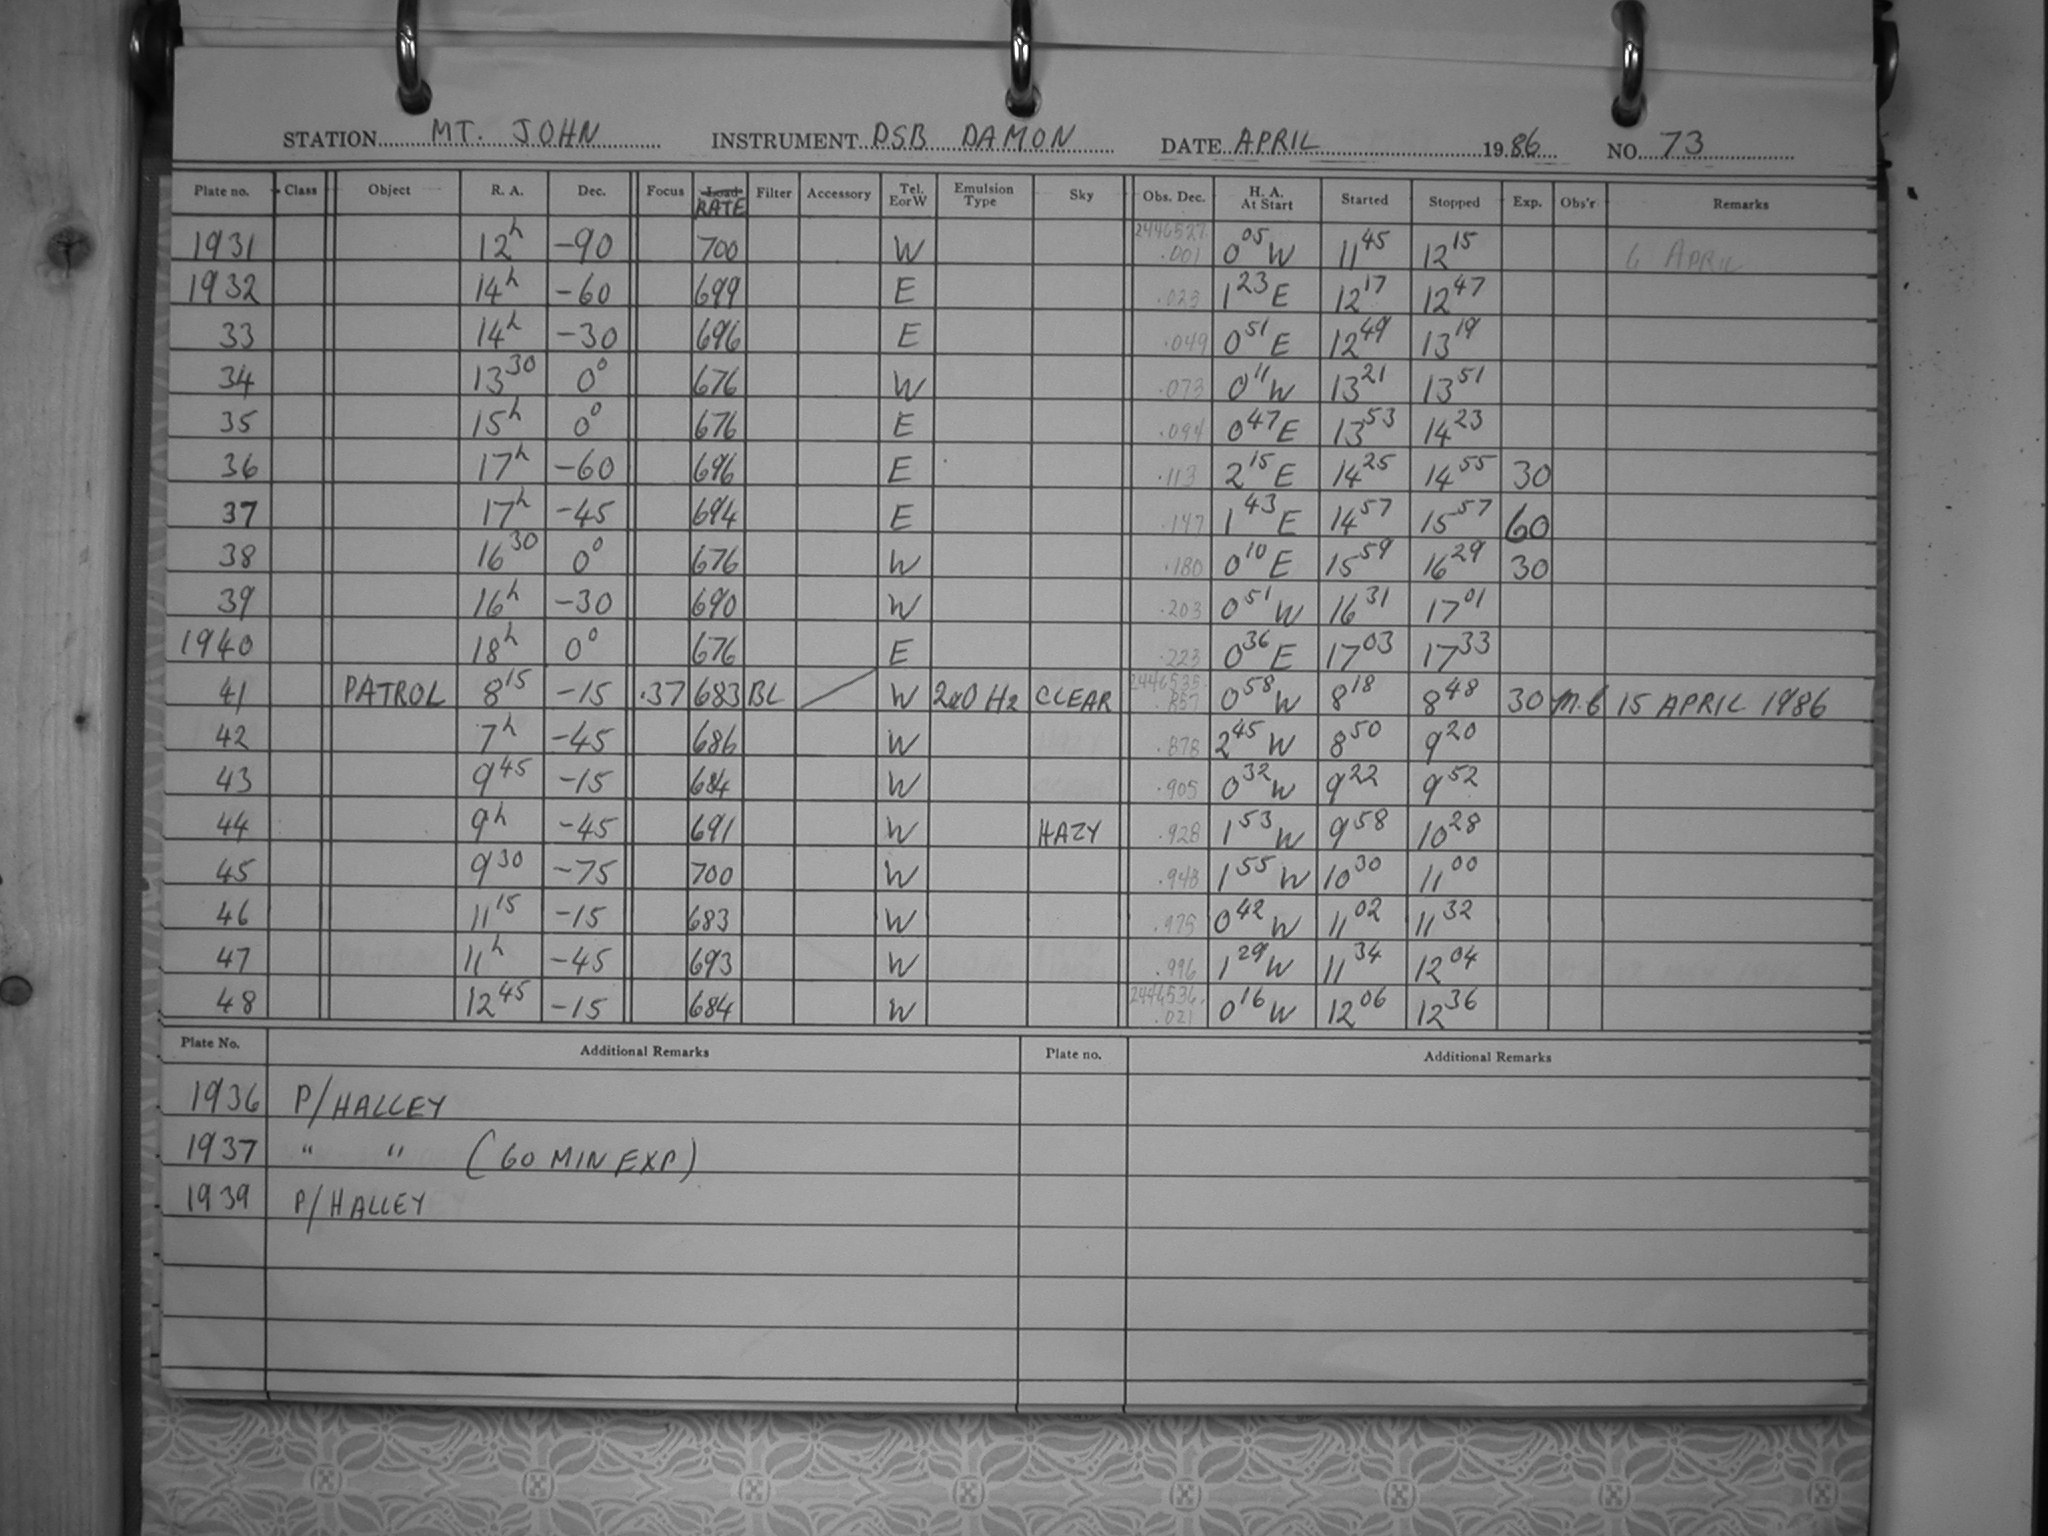 STATION MT. JOHN INSTRUMENT DSB DAMON DATE APRIL 1986 NO. 73
Plate no. Class Object R. A. Dec. Focus Load RATE Filter Accessory Tel. E or W Emulsion Type Sky Obs. Dec. H. A. At Start Started Stopped Exp. Obs'r Remarks
1931 12h -90 700 W 2446527 .001 0 05 W 11 45 12 15 6 APRIL
1932 14h -60 699 E .023 1 23 E 12 17 12 47
33 14h -30 696 E .049 0 51 E 12 49 13 19
34 13 30 0° 676 W .073 0 11 W 13 21 13 51
35 15h 0° 676 E .094 0 47 E 13 53 14 23
36 17h -60 696 E .113 2 15 E 14 25 14 55 30
37 17h -45 694 E .147 1 43 E 14 57 15 57 60
38 16 30 0° 676 W .180 0 10 E 15 59 16 29 30
39 16h -30 690 W .203 0 51 W 16 31 17 01
1940 18h 0° 676 E .223 0 36 E 17 03 17 33
41 PATROL 8 15 -15 .37 683 BL W 2aO H2 CLEAR 2446535. .857 0 58 W 8 18 8 48 30 15 APRIL 1986
42 7h -45 686 W .878 2 45 W 8 50 9 20
43 9 45 -15 684 W .905 0 32 W 9 22 9 52
44 9h -45 691 W HAZY .928 1 53 W 9 58 10 28
45 9 30 -75 700 W .948 1 55 W 10 30 11 00
46 11 15 -15 683 W .975 0 42 W 11 02 11 32
47 11h -45 693 W .996 1 29 W 11 34 12 04
48 12 45 -15 684 W 2446536. .021 0 16 W 12 06 12 36
Plate No. Additional Remarks Plate no. Additional Remarks
1936 P/HALLEY
1937 " " (60 MIN EXP)
1939 P/HALLEY